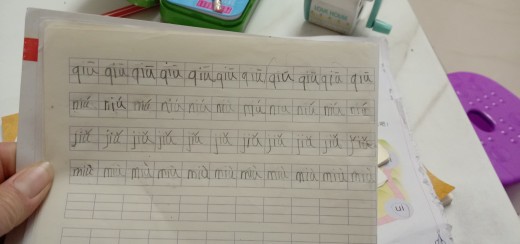 qiū qiū qiū qiū qiū qiū qiū qiū qiū qiū qiū
niú niú niú niú niú niú niú niú niú niú niú
jiǔ jiǔ jiǔ jiǔ jiǔ jiǔ jiǔ jiǔ jiǔ jiǔ jiǔ
miù miù miù miù miù miù miù miù miù miù miù